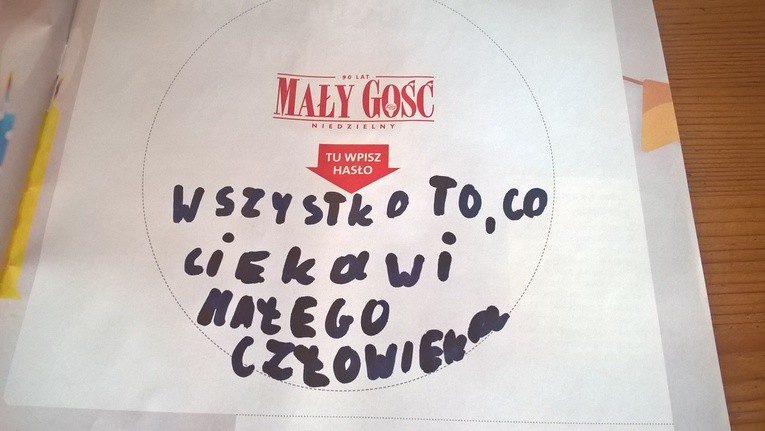 90 LAT
MAŁY GOŚĆ
NIEDZIELNY
TU WPISZ
HASŁO
WSZYSTKO TO, CO
CIEKAWI
MAŁEGO
CZŁOWIEKA